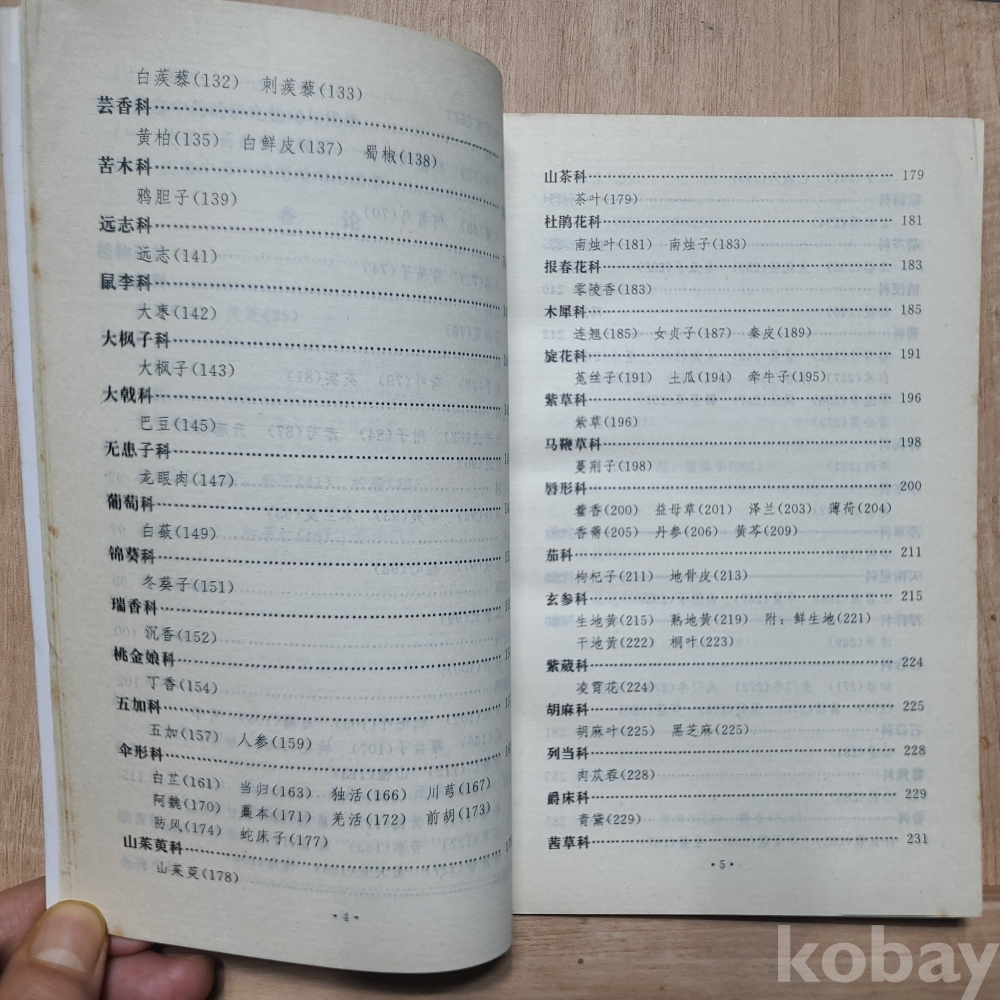 白蒺藜(132) 刺蒺藜(133)
芸香科
黄柏(135) 白鲜皮(137) 蜀椒(138)
苦木科
鸦胆子(139)
远志科
远志(141)
鼠李科
大枣(142)
大枫子科
大枫子(143)
大戟科
巴豆(145)
无患子科
龙眼肉(147)
葡萄科
白蔹(149)
锦葵科
冬葵子(151)
瑞香科
沉香(152)
桃金娘科
丁香(154)
五加科
五加(157) 人参(159)
伞形科
白芷(161) 当归(163) 独活(166) 川芎(167)
阿魏(170) 藁本(171) 羌活(172) 前胡(173)
防风(174) 蛇床子(177)
山茱萸科
山茱萸(178)
·4·
山茶科 179
茶叶(179)
杜鹃花科 181
南烛叶(181) 南烛子(183)
报春花科 183
零陵香(183)
木犀科 185
连翘(185) 女贞子(187) 秦皮(189)
旋花科 191
菟丝子(191) 土瓜(194) 牵牛子(195)
紫草科 196
紫草(196)
马鞭草科 198
蔓荆子(198)
唇形科 200
藿香(200) 益母草(201) 泽兰(203) 薄荷(204)
香薷(205) 丹参(206) 黄芩(209)
茄科 211
枸杞子(211) 地骨皮(213)
玄参科 215
生地黄(215) 熟地黄(219) 附:鲜生地(221)
干地黄(222) 桐叶(223)
紫葳科 224
凌霄花(224)
胡麻科 225
胡麻叶(225) 黑芝麻(225)
列当科 228
肉苁蓉(228)
爵床科 229
青黛(229)
茜草科 231
·5·
kobay